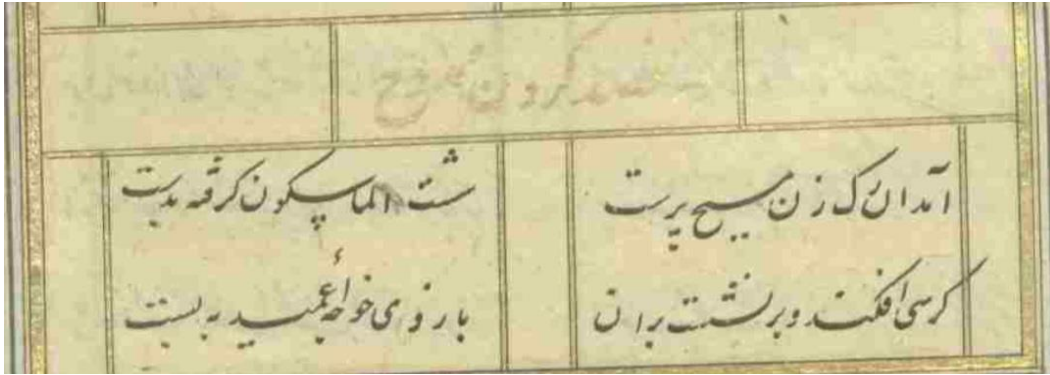 فصد کردن ممدوح
امد ان رک زن مسیح پرست شست الماسکون کرفته بدست
کرسی افکند و برنشست بران بازوی خواجهٔ عمید به بست